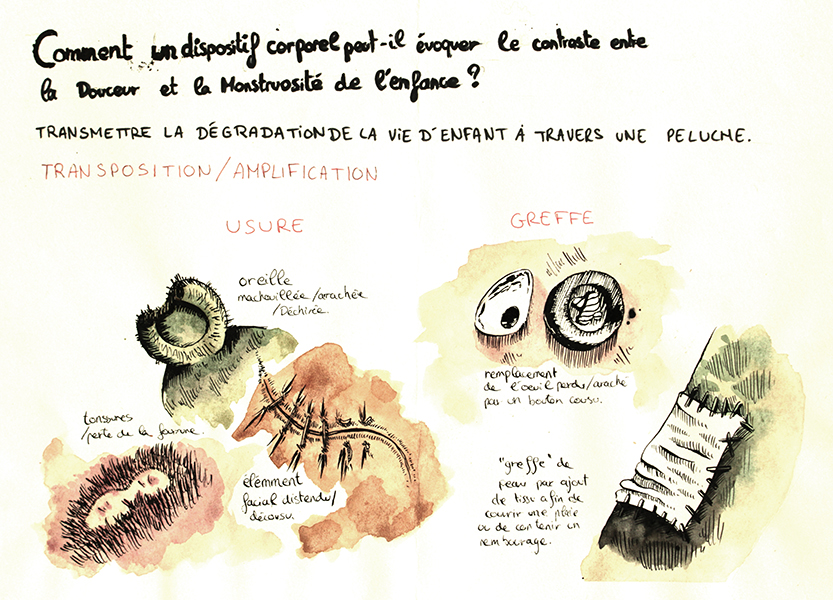 Comment un dispositif corporel peut-il évoquer le contraste entre
la Douceur et la Monstruosité de l'enfance ?
TRANSMETTRE LA DÉGRADATION DE LA VIE D'ENFANT À TRAVERS UNE PELUCHE.
TRANSPOSITION/AMPLIFICATION
USURE
oreille
machouillée/arrachée
/Déchirée.
tonsures
/perte de la fourrure.
élémment
facial distendu/
décousu.
GREFFE
remplacement
de l'oeuil perdu/araché
par un bouton cousu.
"greffe" de
peau par ajout
de tissu afin de
couvrir une plaie
ou de contenir un
rembourage.